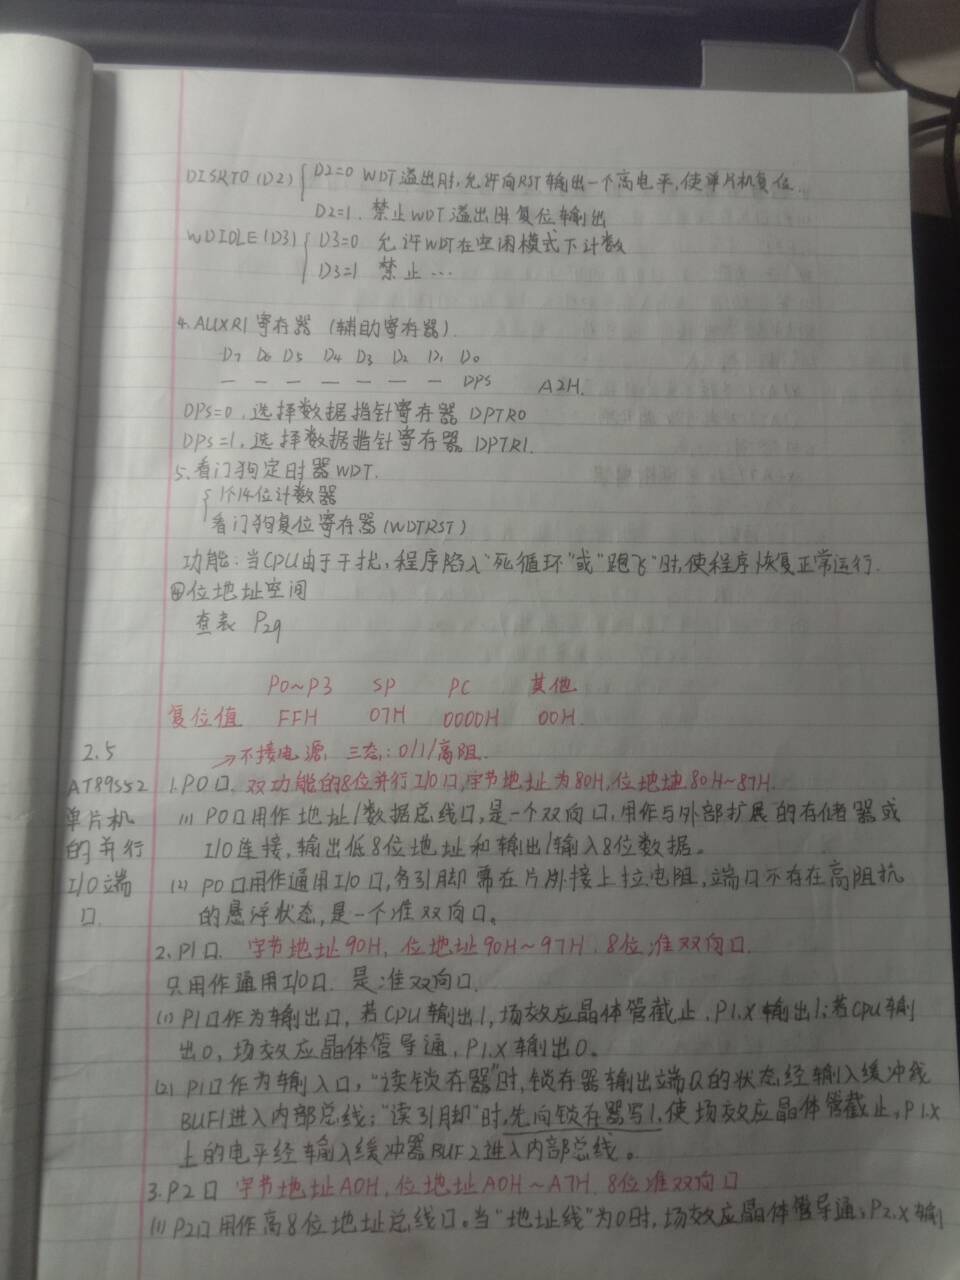 DISRTO (D2) { D2=0 WDT溢出时,允许向RST输出一个高电平,使单片机复位.
D2=1. 禁止WDT溢出时复位输出
WDIDLE(D3) { D3=0 允许WDT在空闲模式下计数
D3=1 禁止 …
4. AUXR1寄存器 (辅助寄存器).
D7 D6 D5 D4 D3 D2 D1 D0
— — — — — — — DPS A2H.
DPS=0, 选择数据指针寄存器 DPTR0
DPS=1, 选择数据指针寄存器 DPTR1.
5. 看门狗定时器WDT.
{ 1个14位计数器
看门狗复位寄存器(WDTRST)
功能: 当CPU由于干扰, 程序陷入“死循环”或“跑飞”时,使程序恢复正常运行.
④位地址空间
查表 P29
P0~P3 SP PC 其他
复位值 FFH 07H 0000H 00H.
→不接电源, 三态:0/1/高阻.
2.5
AT89S52
单片机
的并行
I/O端
口.
1.P0口. 双功能的8位并行I/O口,字节地址为80H,位地址80H~87H.
(1) P0口用作地址/数据总线口,是一个双向口,用作与外部扩展的存储器或
I/O连接, 输出低8位地址和输出/输入8位数据。
(2) P0口用作通用I/O口,各引脚需在片外接上拉电阻,端口不存在高阻抗
的悬浮状态,是一个准双向口。
2.P1口. 字节地址90H, 位地址90H~97H. 8位准双向口.
只用作通用I/O口. 是准双向口.
(1) P1口作为输出口, 若CPU输出1,场效应晶体管截止,P1.X输出1;若CPU输
出0, 场效应晶体管导通, P1.X输出0。
(2) P1口作为输入口,“读锁存器”时,锁存器输出端Q的状态经输入缓冲线
BUF1进入内部总线;“读引脚”时,先向锁存器写1,使场效应晶体管截止,P1.X
上的电平经输入缓冲器BUF2进入内部总线。
3.P2口 字节地址A0H, 位地址A0H~A7H. 8位准双向口
(1) P2口用作高8位地址总线口。当“地址线”为0时,场效应晶体管导通,P2.X输